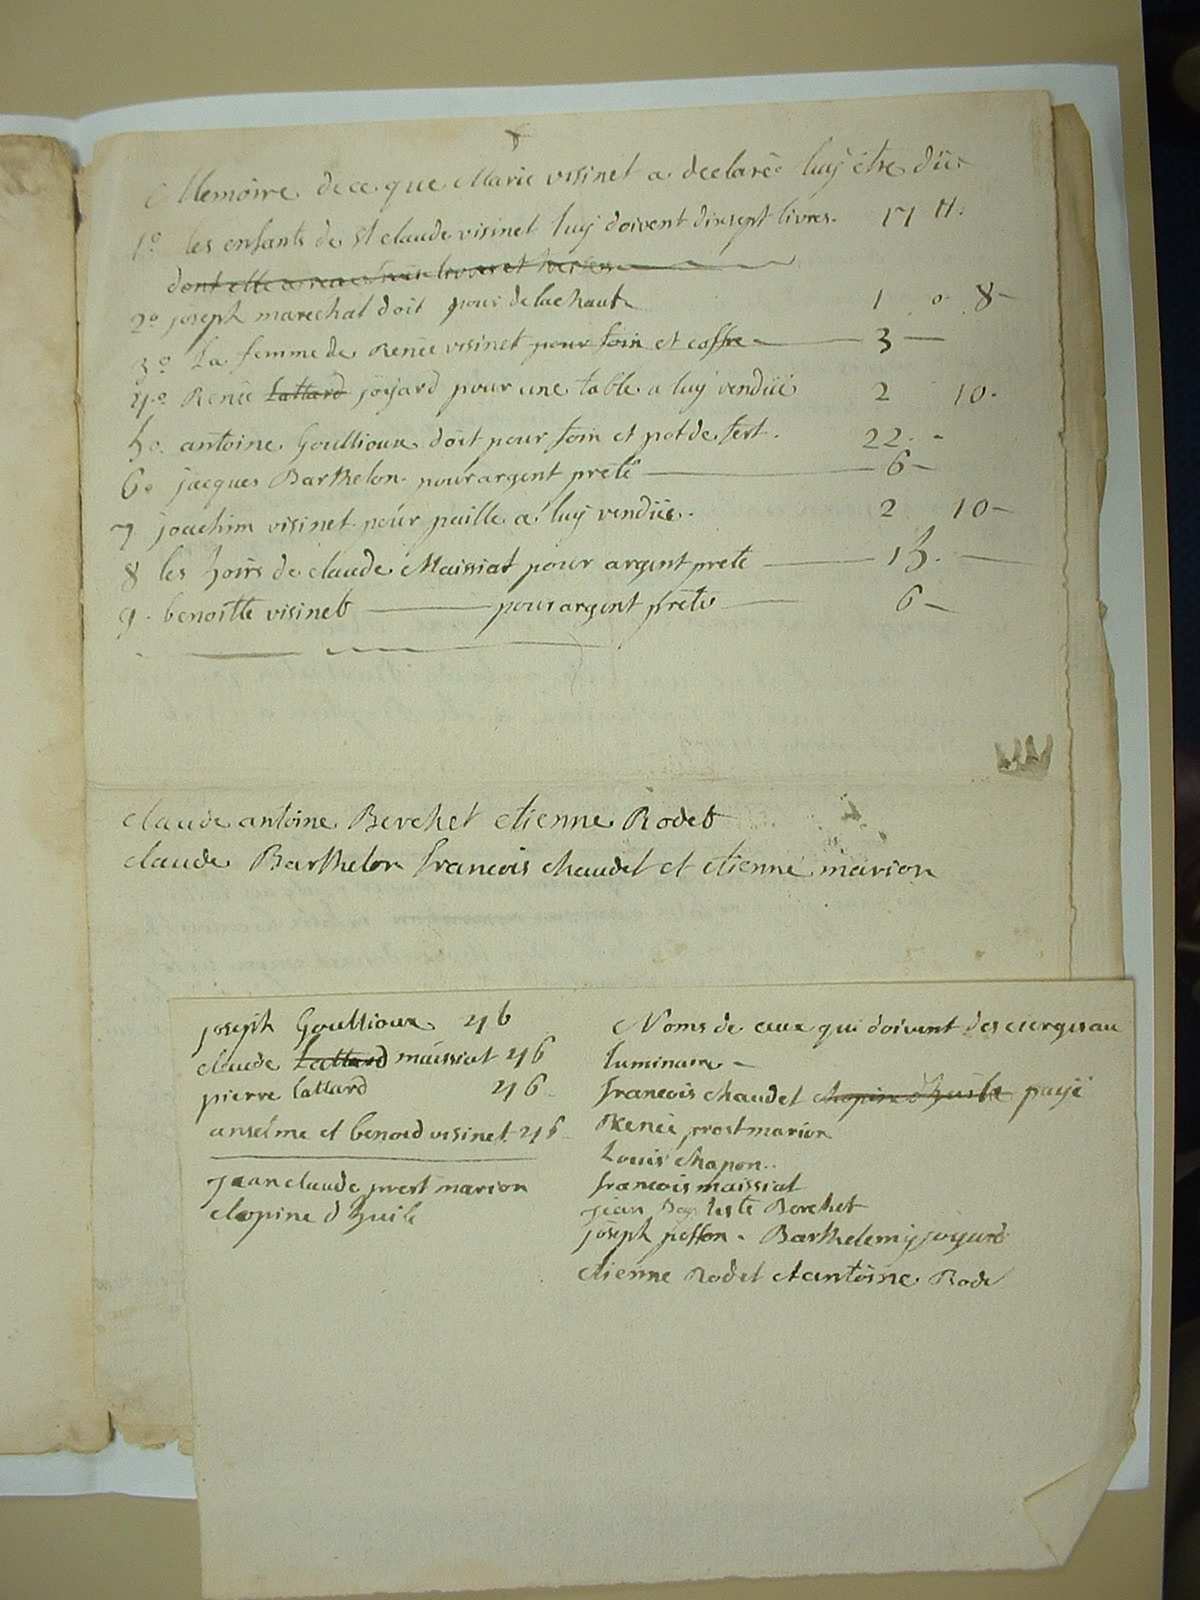 Memoire de ce que Marie visinet a declaré luy être düe
1° les enfants de St claude visinet luy doivent dixsept livres. 17 tt.
dont elle a
2° joseph marechal doit pour de la chaut 1 o 8
3° La femme de Renée visinet pour foin et coffre 3
4° Renée Lattard joyard pour une table a luy vendüe 2 10
5° antoine Goullioux doit pour foin et pot de fert. 22
6° jacques Barthelon pour argent preté 6
7 joachim visinet pour paille a luy vendüe 2 10
8 les hoirs de claude Maissiat pour argent preté 15
9 benoitte visinet pour argent preté 6
claude antoine Berchet etienne Rodet
claude Barthelon francois chaudet et etienne marion
joseph Goullioux 46
claude Lattard maissiat 46
pierre Lattard 46
anselme et benoid visinet 46
jean claude prost marion
chopine d huile
Noms de ceux qui doivent des cierges au
luminaire
francois chaudet chopine d'huile payé
Renée prost marion
Louis chapon
francois maissiat
jean Baptiste Berchet
joseph poffon Barthelemy joyard
etienne Rodet et antoine Rode